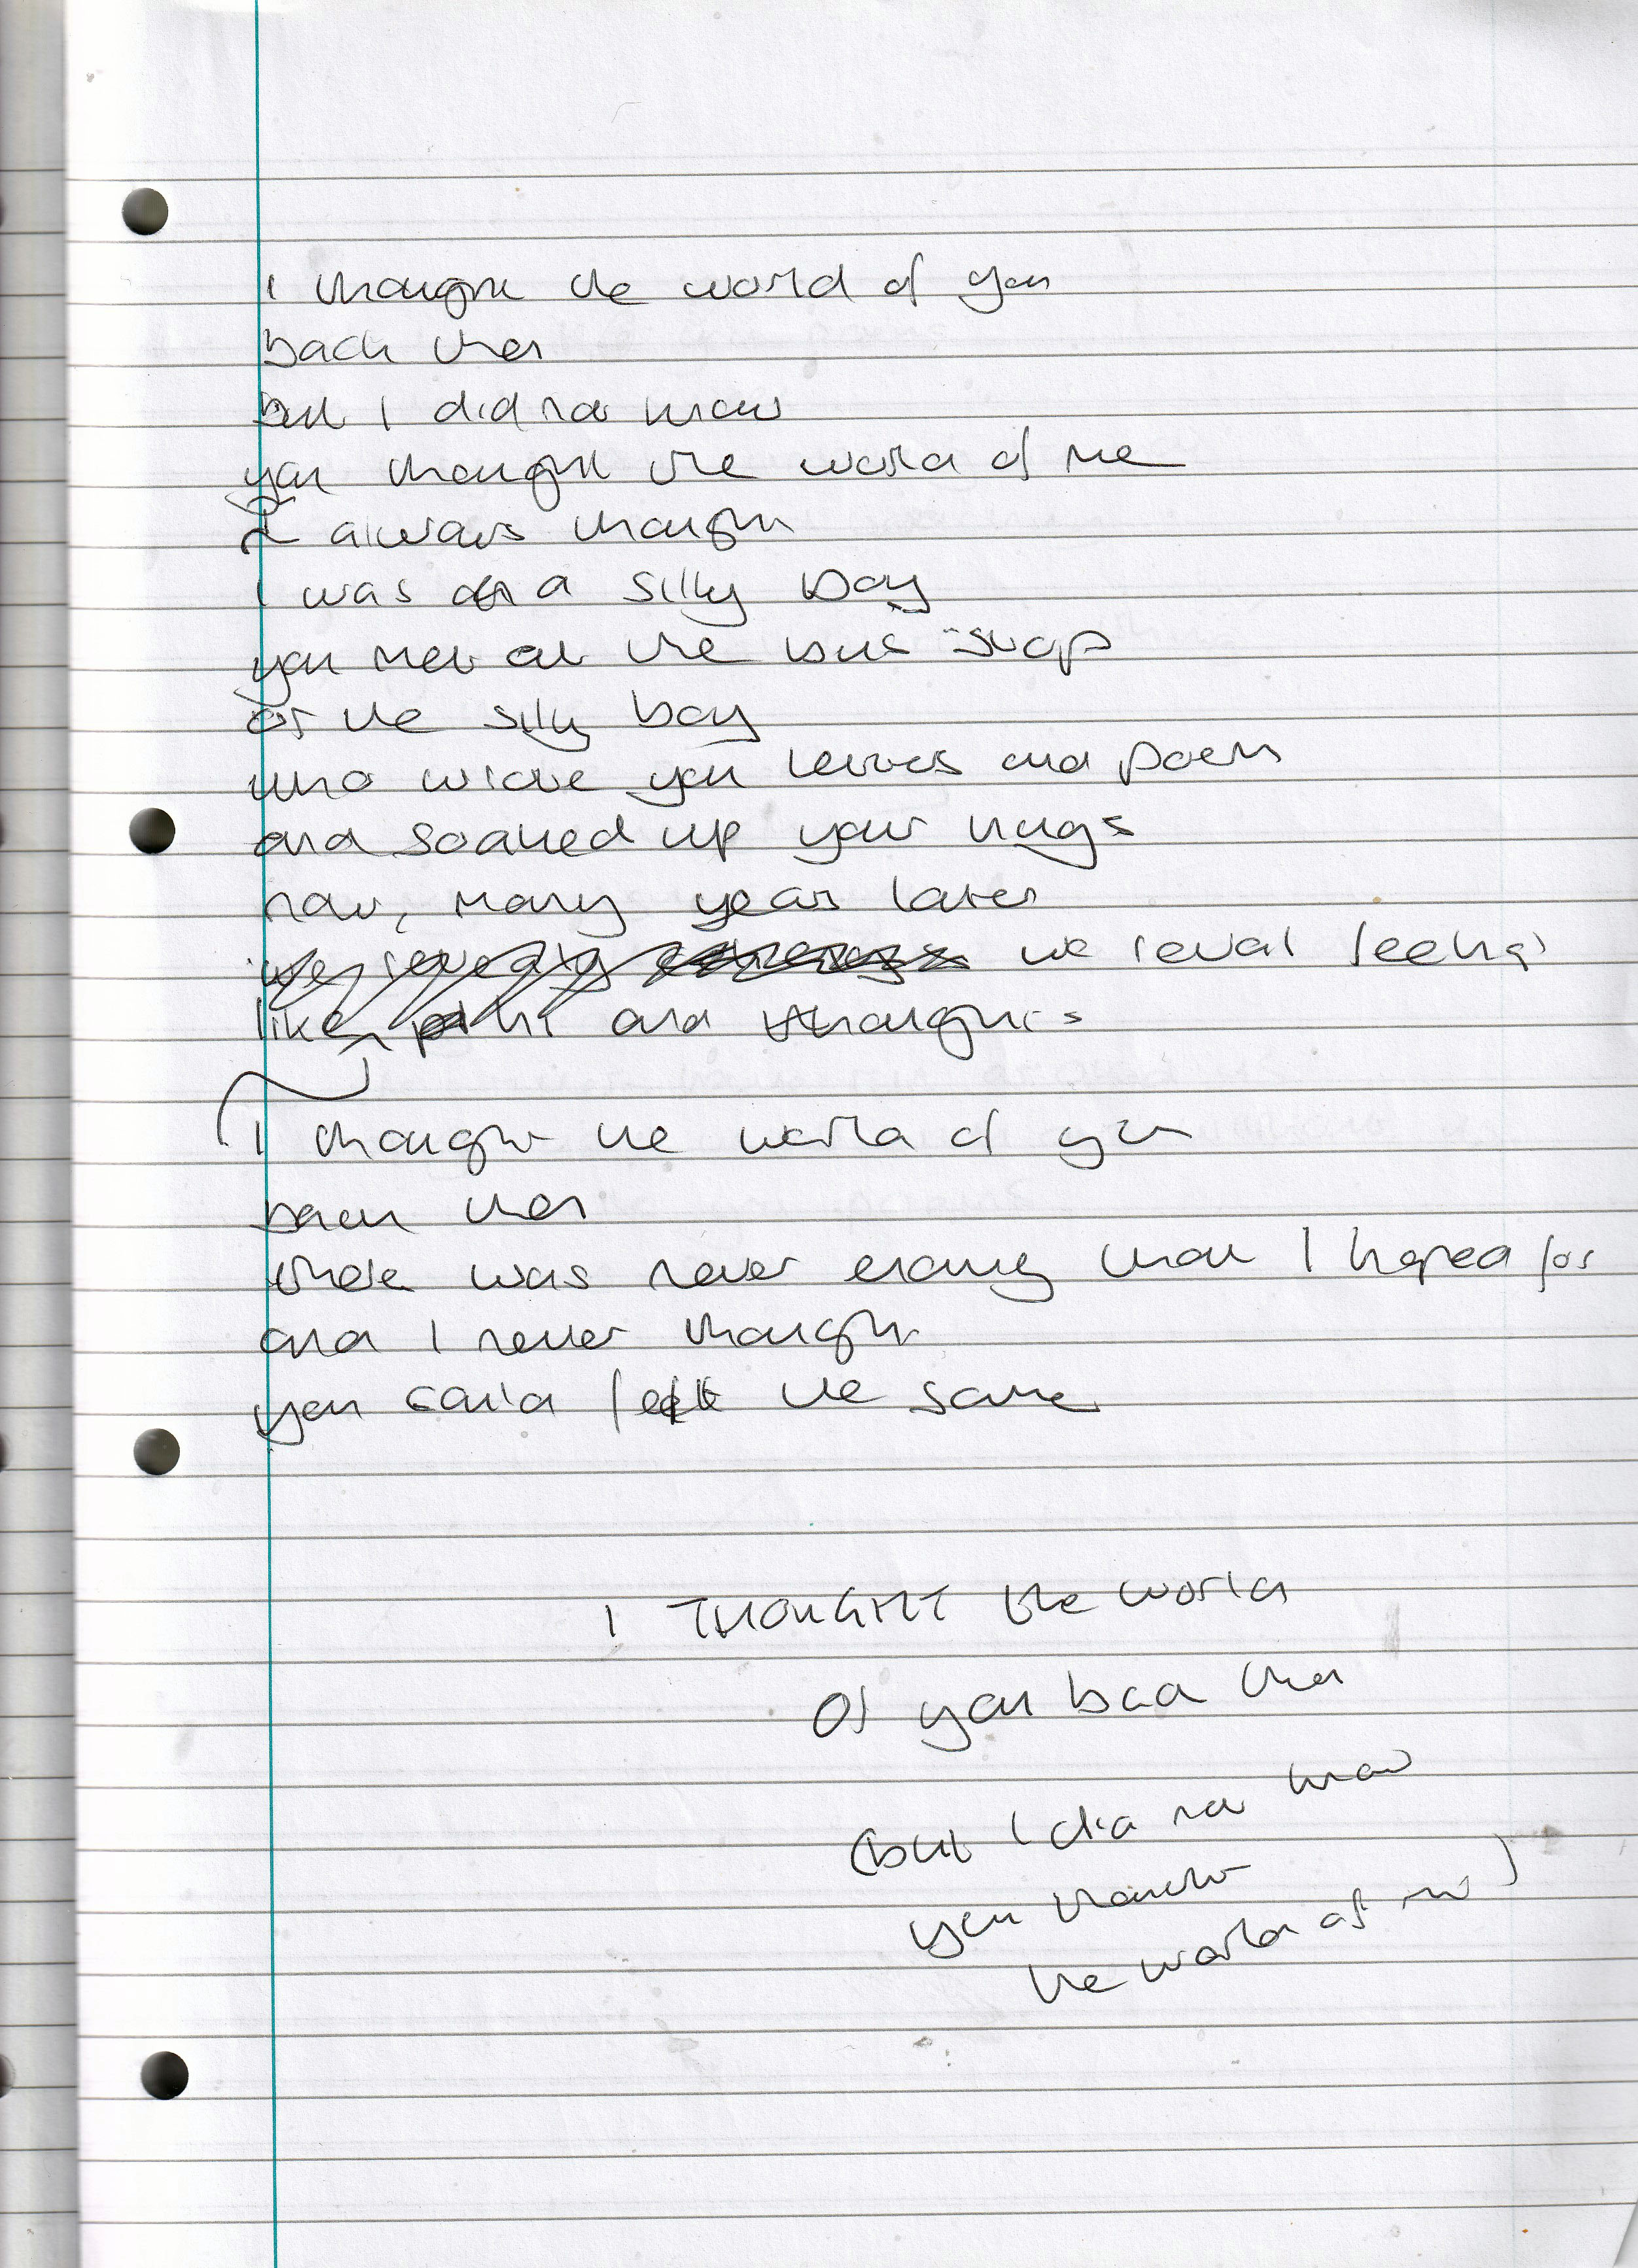 I thought the world of you
back then
but I did not know
you thought the world of me
I always thought
I was a silly boy
you met at the bus stop
or the silly boy
who wrote you letters and poems
and soaked up your hugs
now, many years later
we reveal feelings
like and thoughts
I thought the world of you
back then
there was never enough I hoped for
and I never thought
you could felt the same
I THOUGHT the world
Of you back then
(but I did not know
you thought
the world of me)